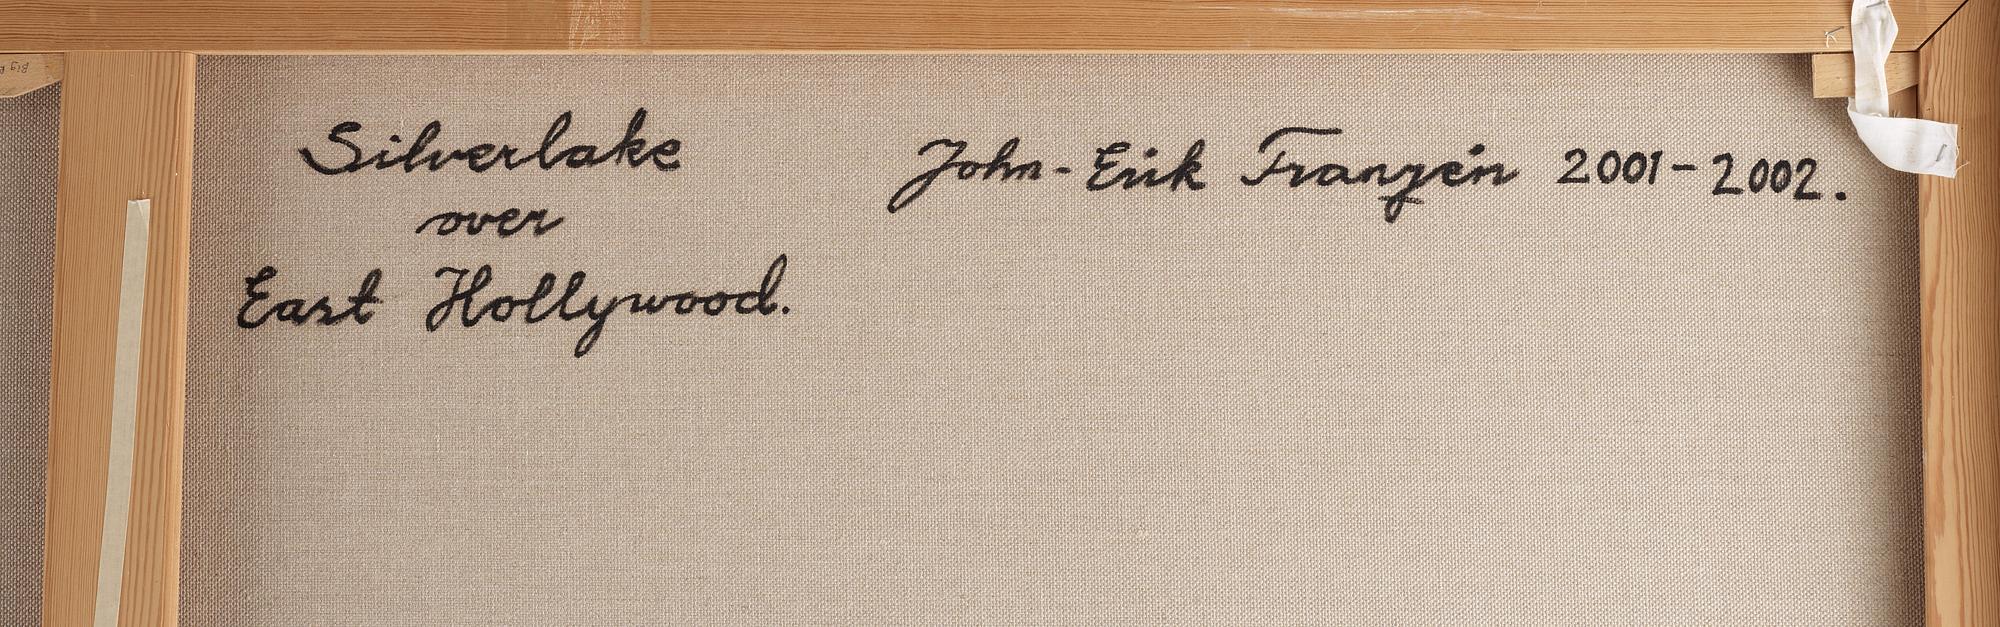 Silverlake
over
East Hollywood.
John-Erik Franzén 2001-2002.
Big